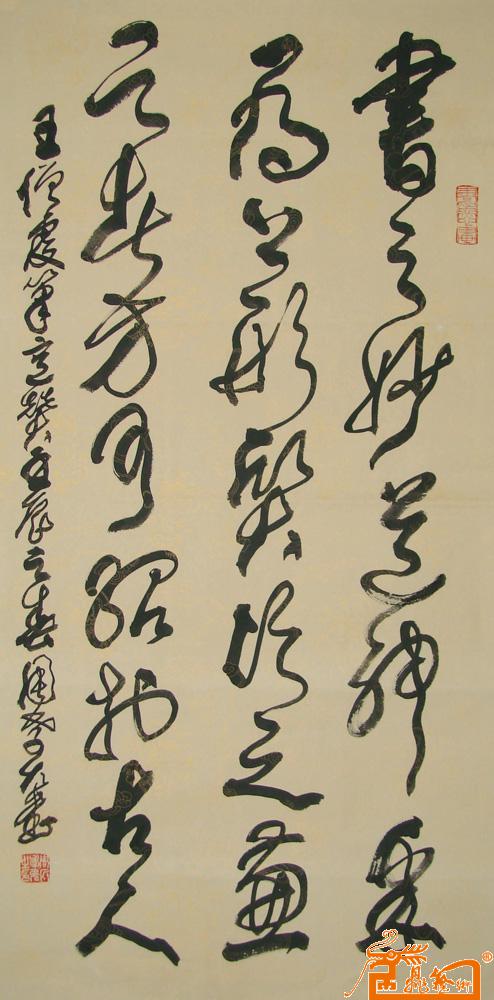 書之妙道神采
為上形質次之兼
之者方可紹於古人
王僧虔筆意贊壬辰之春